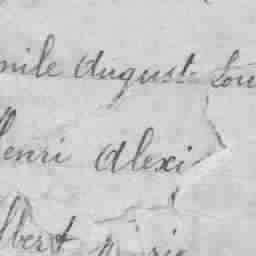 mile August Lou
Henri Alexi
lbert